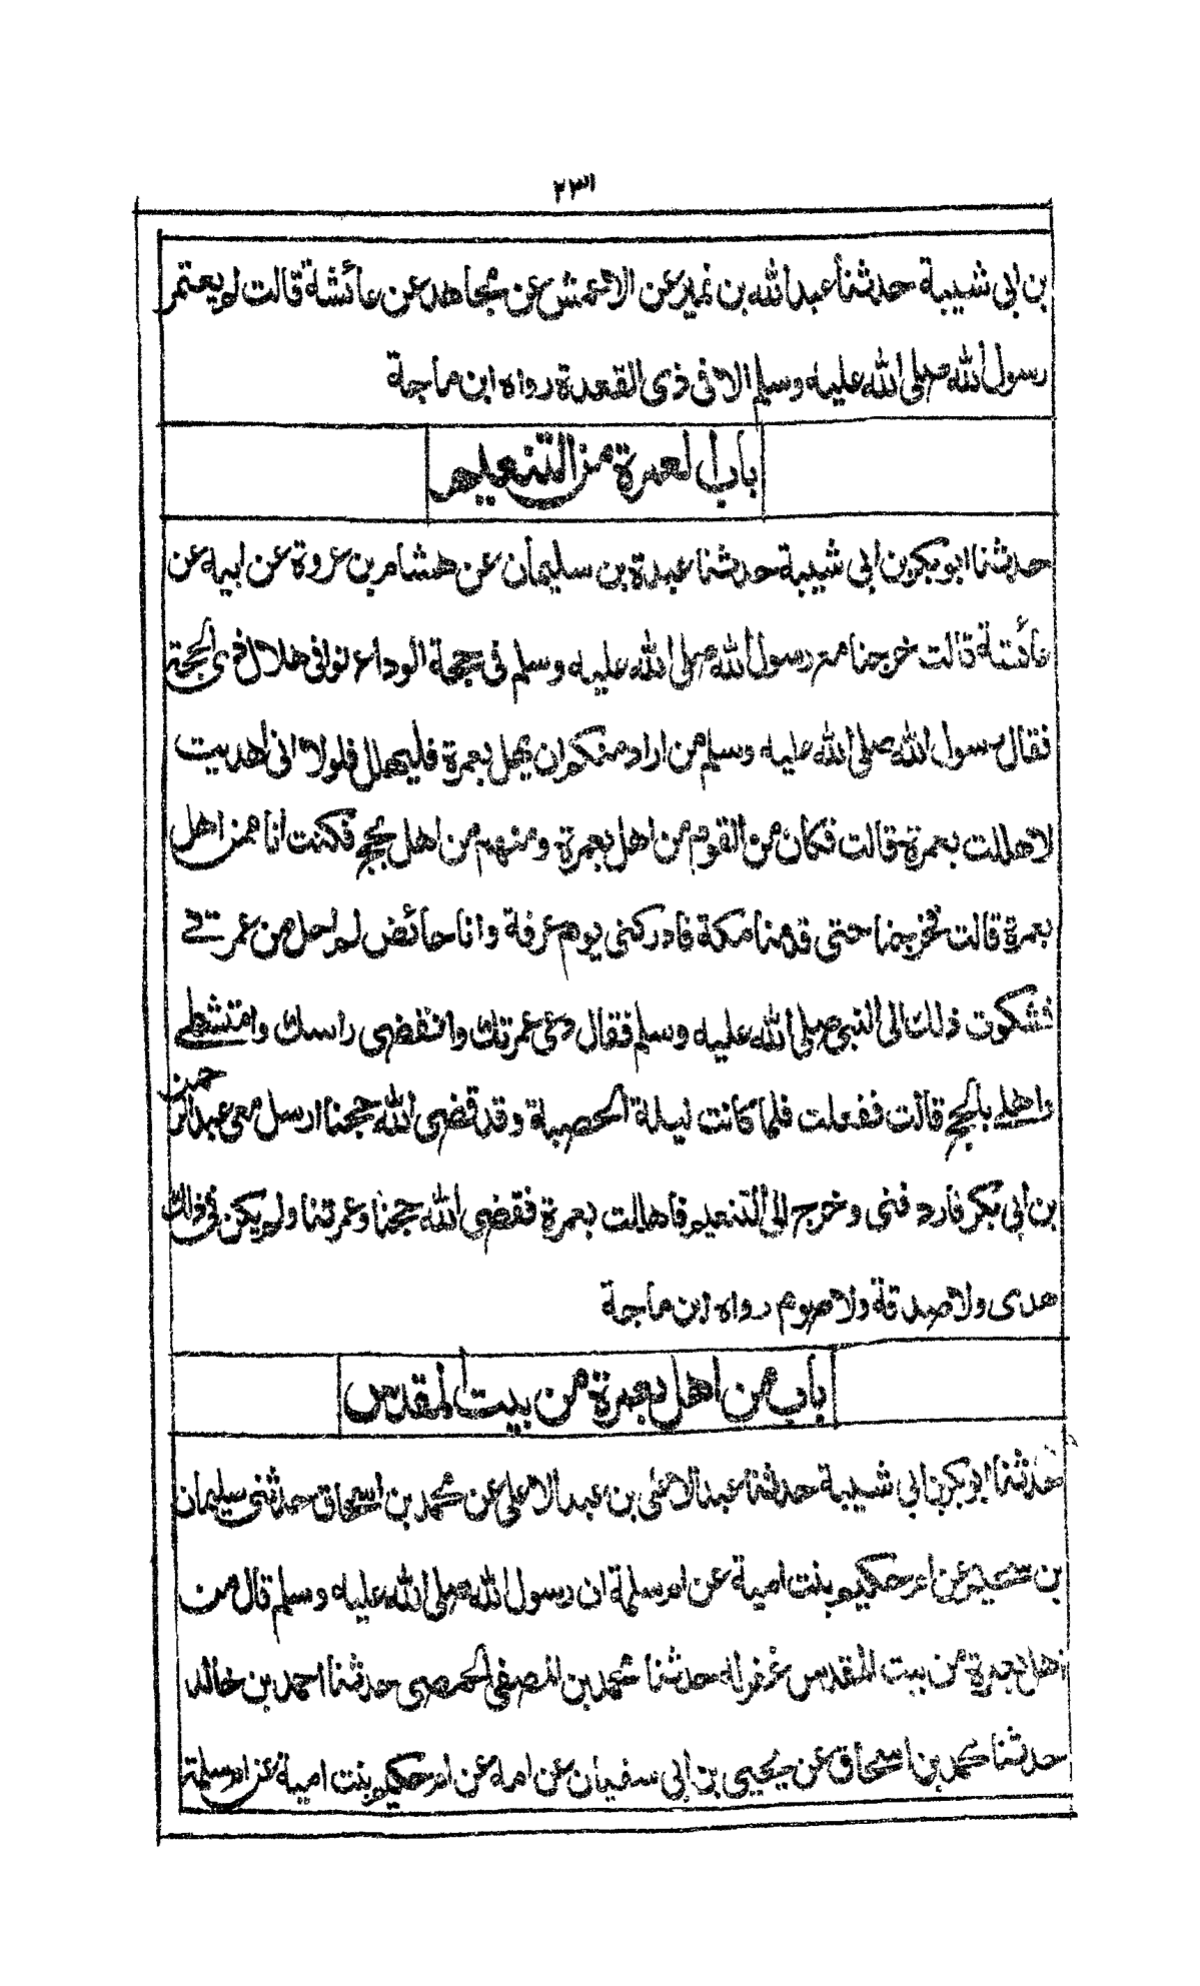 ٢٣١
بن ابي شيبة حدثنا عبد الله بن نمير عن الاعمش عن مجاهد عن عائشة قالت لم يعتمر
رسول الله صلى الله عليه وسلم الا في ذي القعدة رواه ابن ماجة
باب العمرة من التنعيم
حدثنا ابو بكر بن ابي شيبة حدثنا عبدة بن سليمان عن هشام بن عروة عن ابيه عن
عائشة قالت خرجنا مع رسول الله صلى الله عليه وسلم في حجة الوداع نوافي هلال ذي الحجة
فقال رسول الله صلى الله عليه وسلم من اراد منكم ان يهل بعمرة فليهلل فلولا اني اهديت
لاهللت بعمرة قالت فكان من القوم من اهل بعمرة ومنهم من اهل بحج فكنت انا ممن اهل
بعمرة قالت فخرجنا حتى قدمنا مكة فادركني يوم عرفة وانا حائض لم احل من عمرتي
فشكوت ذلك الى النبي صلى الله عليه وسلم فقال دعي عمرتك وانقضي راسك وامتشطي
واهلي بالحج قالت ففعلت فلما كانت ليلة الحصبة وقد قضى الله حجنا ارسل معي عبد الرحمن
بن ابي بكر فاردفني وخرج الى التنعيم فاهللت بعمرة فقضى الله حجنا وعمرتنا ولم يكن في ذلك
هدى ولا صدقة ولا صوم رواه ابن ماجة
باب من اهل بعمرة من بيت المقدس
حدثنا ابو بكر بن ابي شيبة حدثنا عبد الاعلى بن عبد الاعلى عن محمد بن اسحاق حدثني سليمان
بن سحيم عن ام حكيم بنت امية عن ام سلمة ان رسول الله صلى الله عليه وسلم قال من
اهل بعمرة من بيت المقدس غفر له حدثنا محمد بن المصفى الحمصي حدثنا احمد بن خالد
حدثنا محمد بن اسحاق عن يحيى بن ابي سفيان عن امه عن ام حكيم بنت امية عن ام سلمة